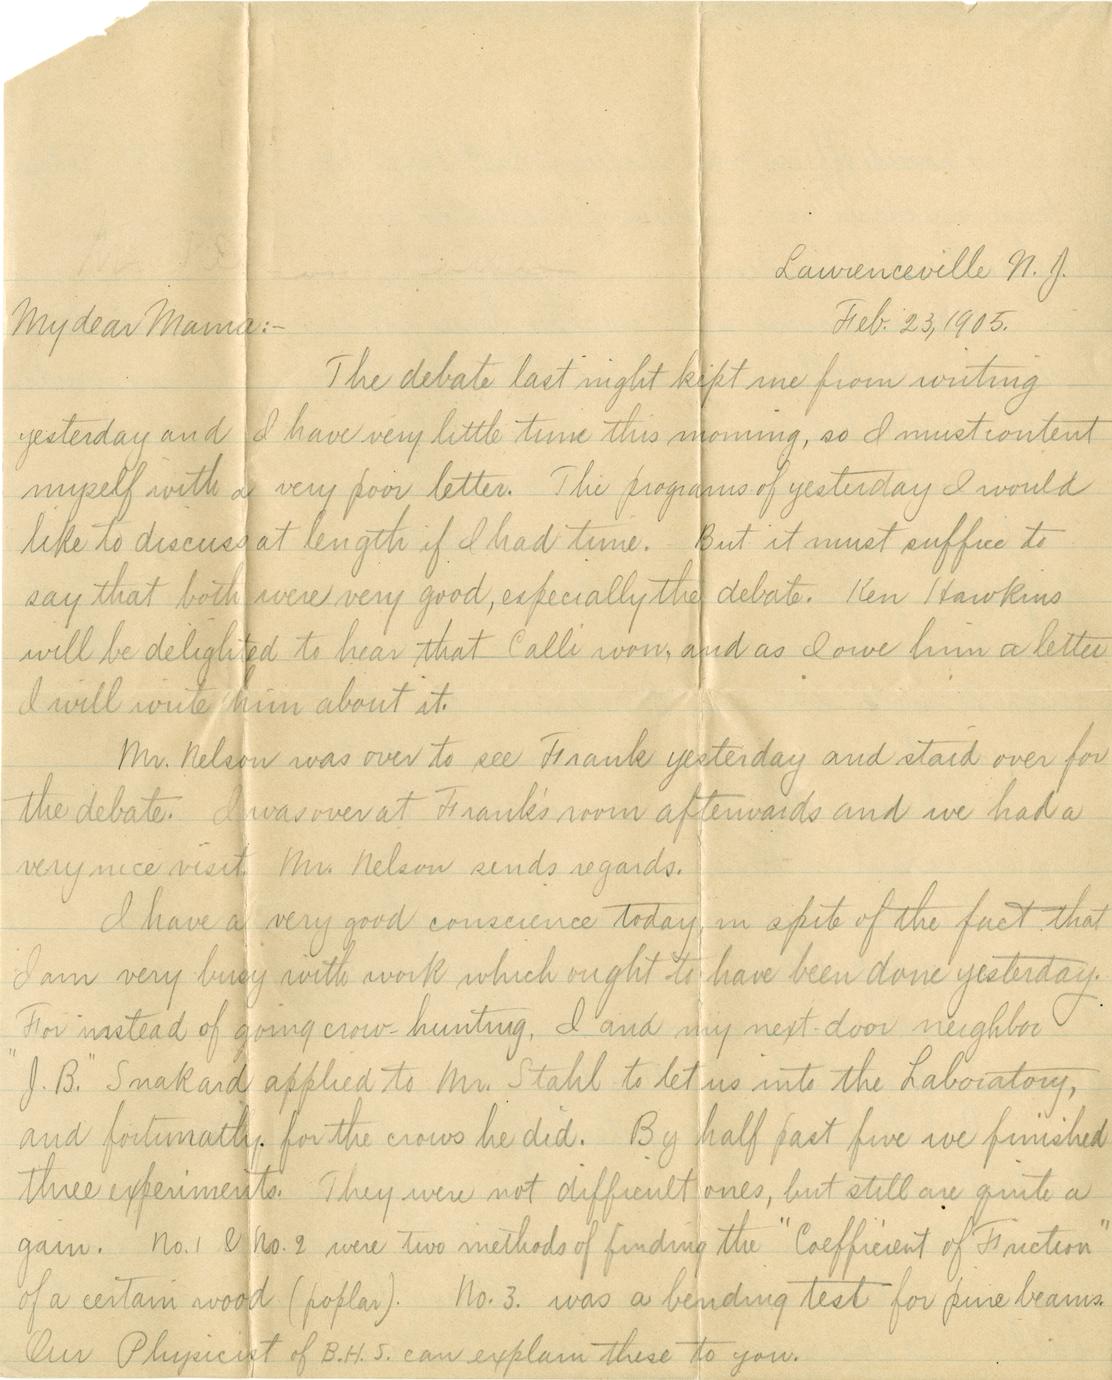 Lawrenceville N. J.
Feb. 23, 1905.
My dear Mama:-
The debate last night kept me from writing
yesterday and I have very little time this morning, so I must content
myself with a very poor letter. The programs of yesterday I would
like to discuss at length if I had time. But it must suffice to
say that both were very good, especially the debate. Ken Hawkins
will be delighted to hear that Calli won, and as I owe him a letter
I will write him about it.
Mr. Nelson was over to see Frank yesterday and staid over for
the debate. I was over at Frank's room afterwards and we had a
very nice visit. Mr. Nelson sends regards.
I have a very good conscience today, in spite of the fact that
I am very busy with work which ought to have been done yesterday.
For instead of going crow-hunting, I and my next-door neighbor
"J. B." Snakard applied to Mr. Stahl to let us into the Laboratory,
and fortunatly for the crows he did. By half past five we finished
three experiments. They were not difficult ones, but still are quite a
gain. No. 1 & No. 2 were two methods of finding the "Coefficient of Friction"
of a certain wood (poplar). No. 3. was a bending test for pine beams.
Our Physicist of B.H.S. can explain these to you.